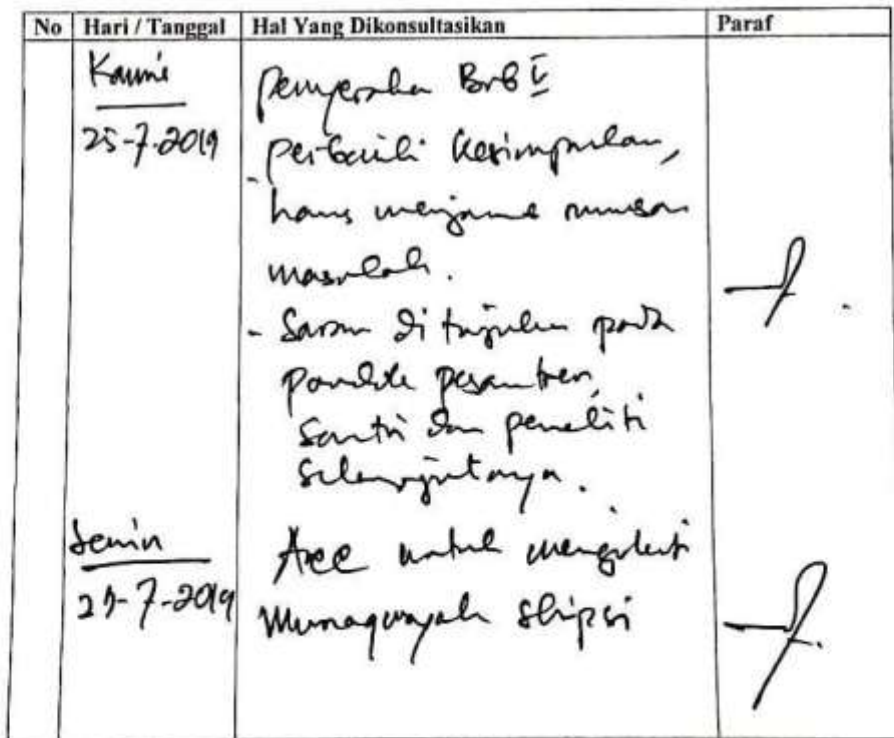 No Hari / Tanggal Hal Yang Dikonsultasikan Paraf
Kamis
25-7-2019
Penyerahan Bab V
- Perbaiki Kesimpulan,
harus menjawab rumusan
masalah.
- Saran di tujukan pada
pondok pesantren,
Santri dan peneliti
Selanjutnya.
Senin
29-7-2019
Acc untuk mengikuti
Munaqosyah Skripsi